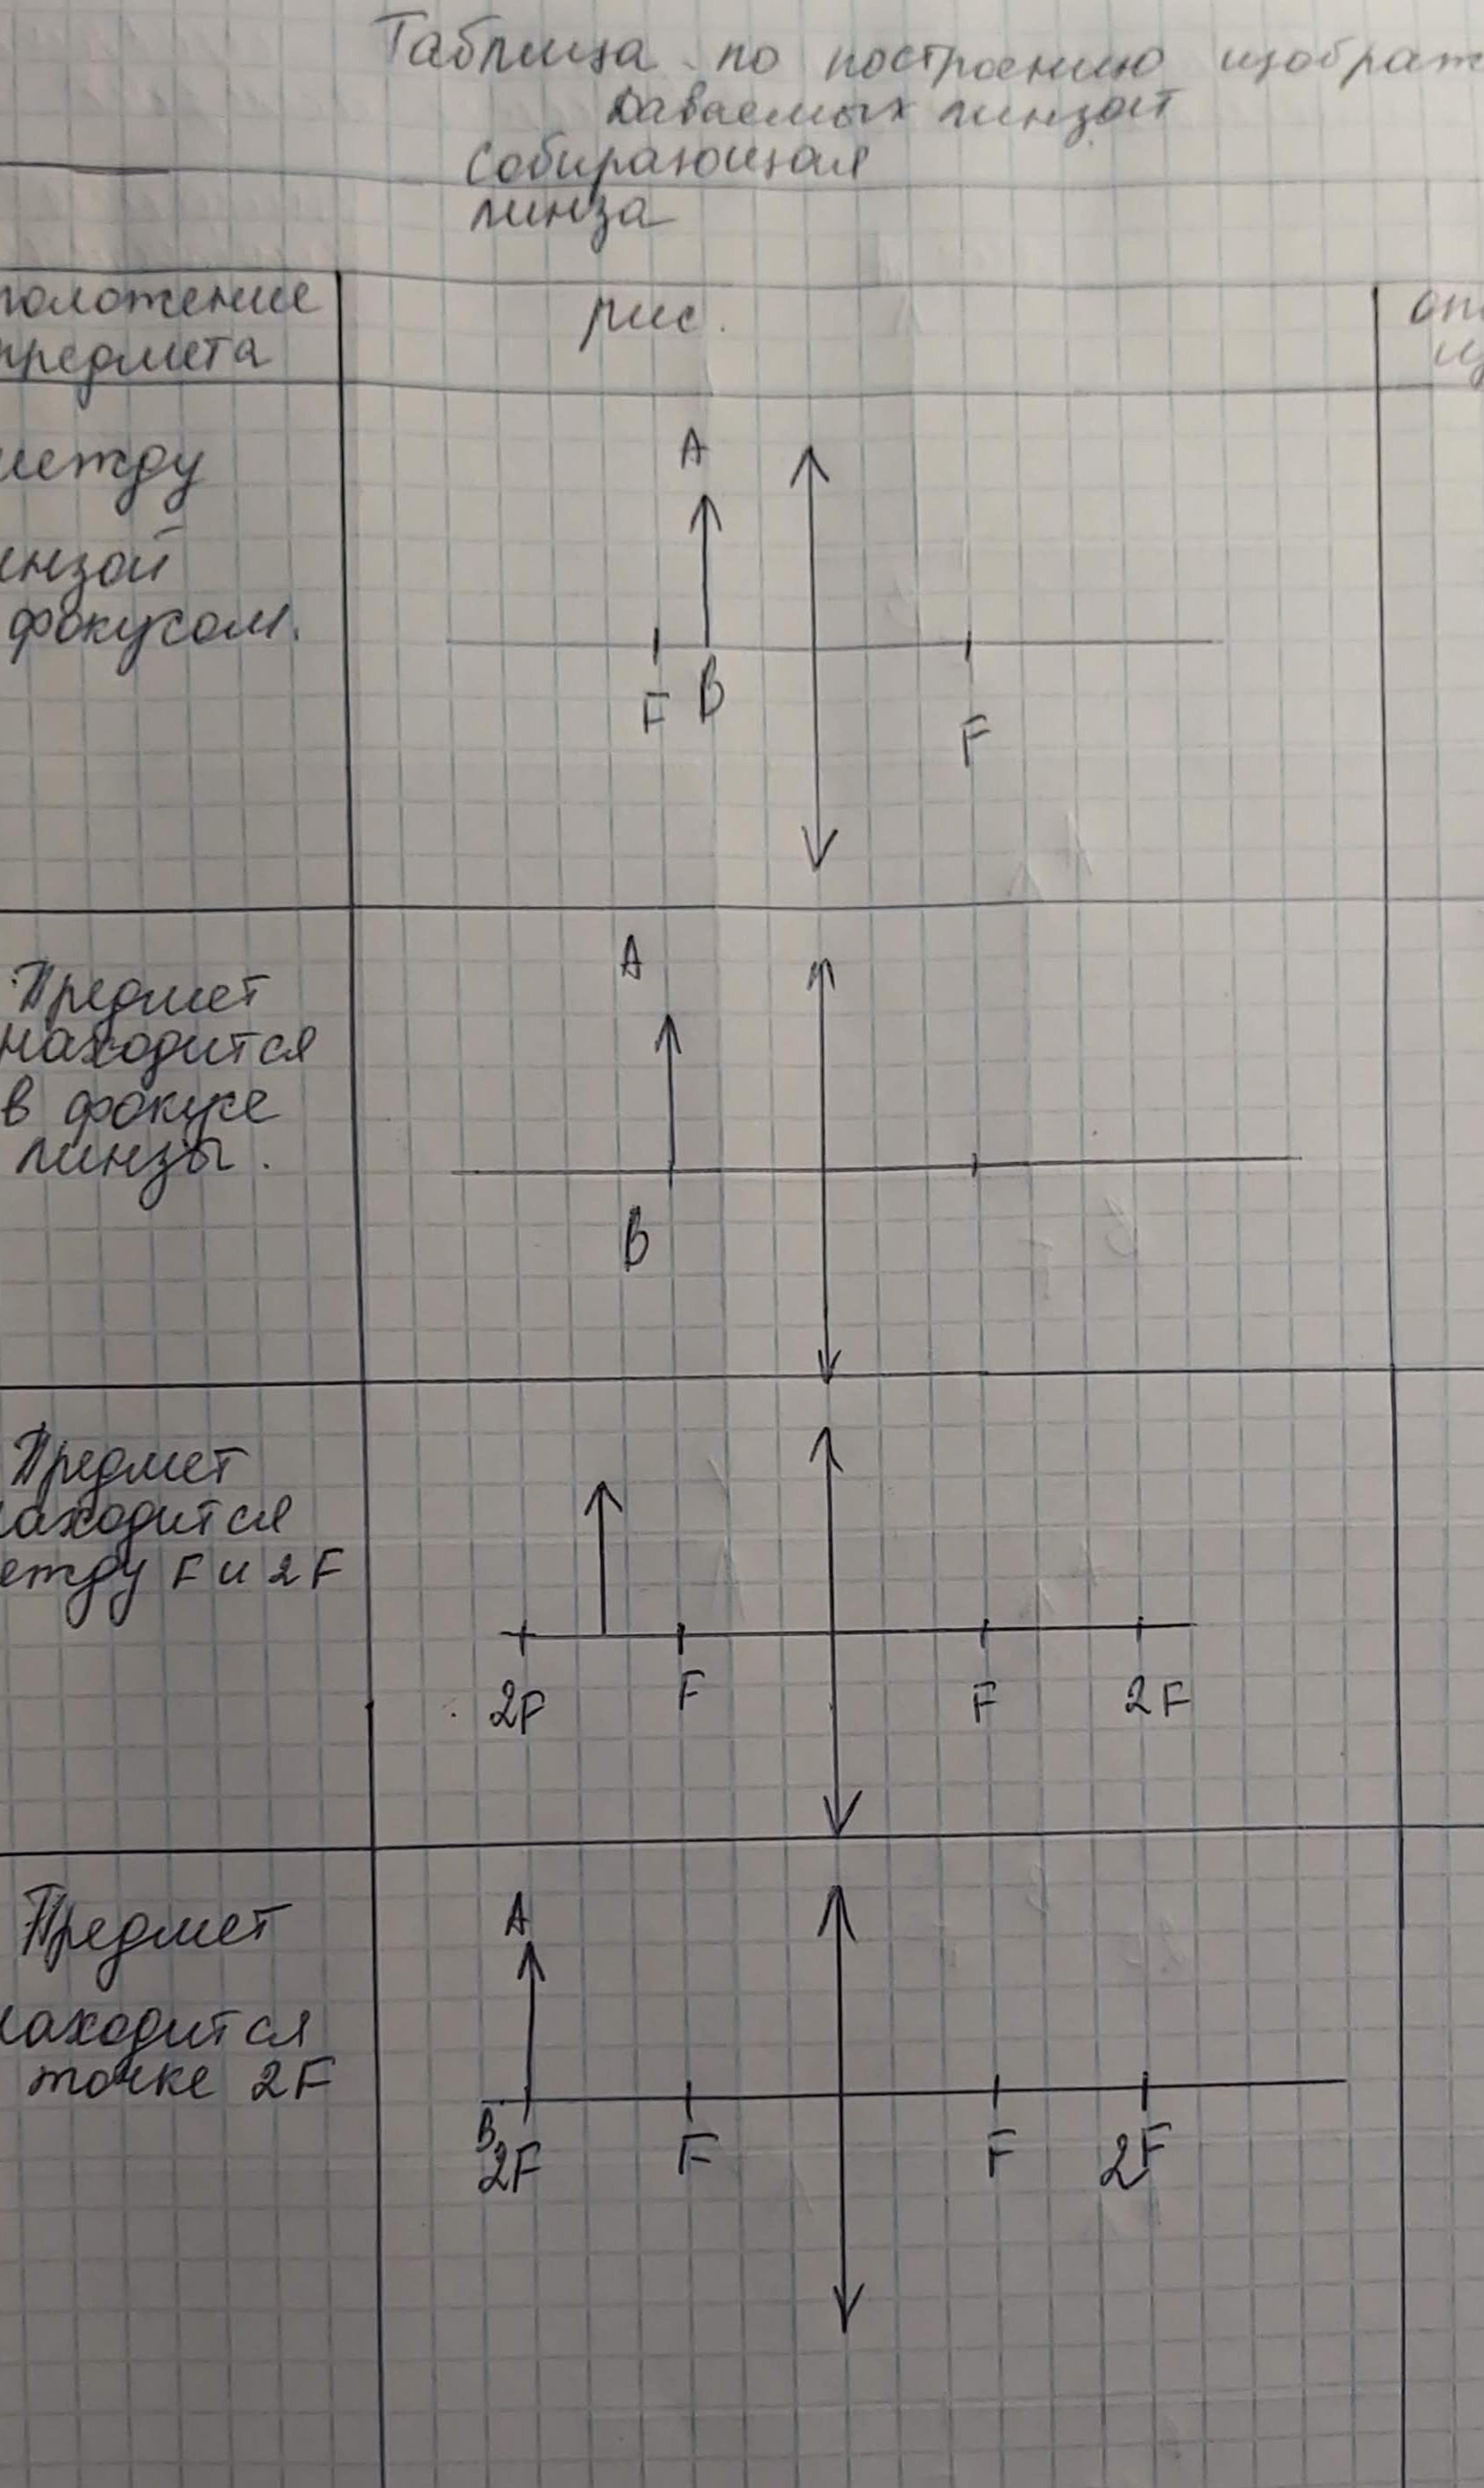 Таблица по построению изображ
даваемых линзой
Собирающая
линза
положение
предмета
рис.
оп
из
между
инзой
фокусом.
A
F B
F
Предмет
находится
в фокусе
линзы.
A
B
Предмет
находится
ежду F и 2F
2F F F 2F
Предмет
находится
точке 2F
A
B
2F F F 2F